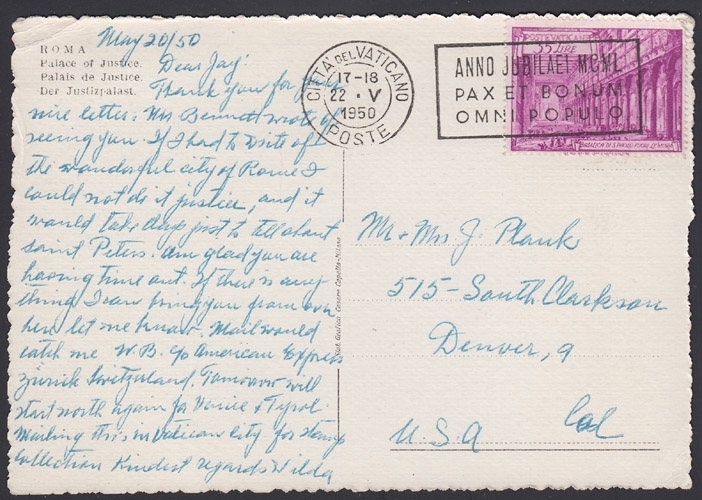 ROMA
Palace of Justice.
Palais de Justice.
Der Justizpalast.
May 20/50
Dear Jay:
Thank you for your
nice letter. Mrs Bennett wrote of
seeing you. If I had to write of
the wonderful city of Rome I
could not do it justice, and it
would take days just to tell about
saint Peters. Am glad you are
having time out. If there is any
thing I can bring you from over
here let me know. Mail would
catch me W.B. c/o American Express
Zürick Switzerland. Tomorrow will
start north again for Venice & Tyrol.
Mailing this in Vatican City for stamp
Collection Kindest regards Wilda
CITTA' DEL VATICANO
17-18
22 · V
1950
POSTE
ANNO JUBILAEI MCML
PAX ET BONUM
OMNI POPULO
POSTE VATICANE
35 LIRE
BASILICA DI S. PAOLO FUORI LE MURA
Mr & Mrs J. Plank
515 - South Clarkson
Denver, 9
Col
U.S.A
Stab. Grafico Cesare Capello-Milano